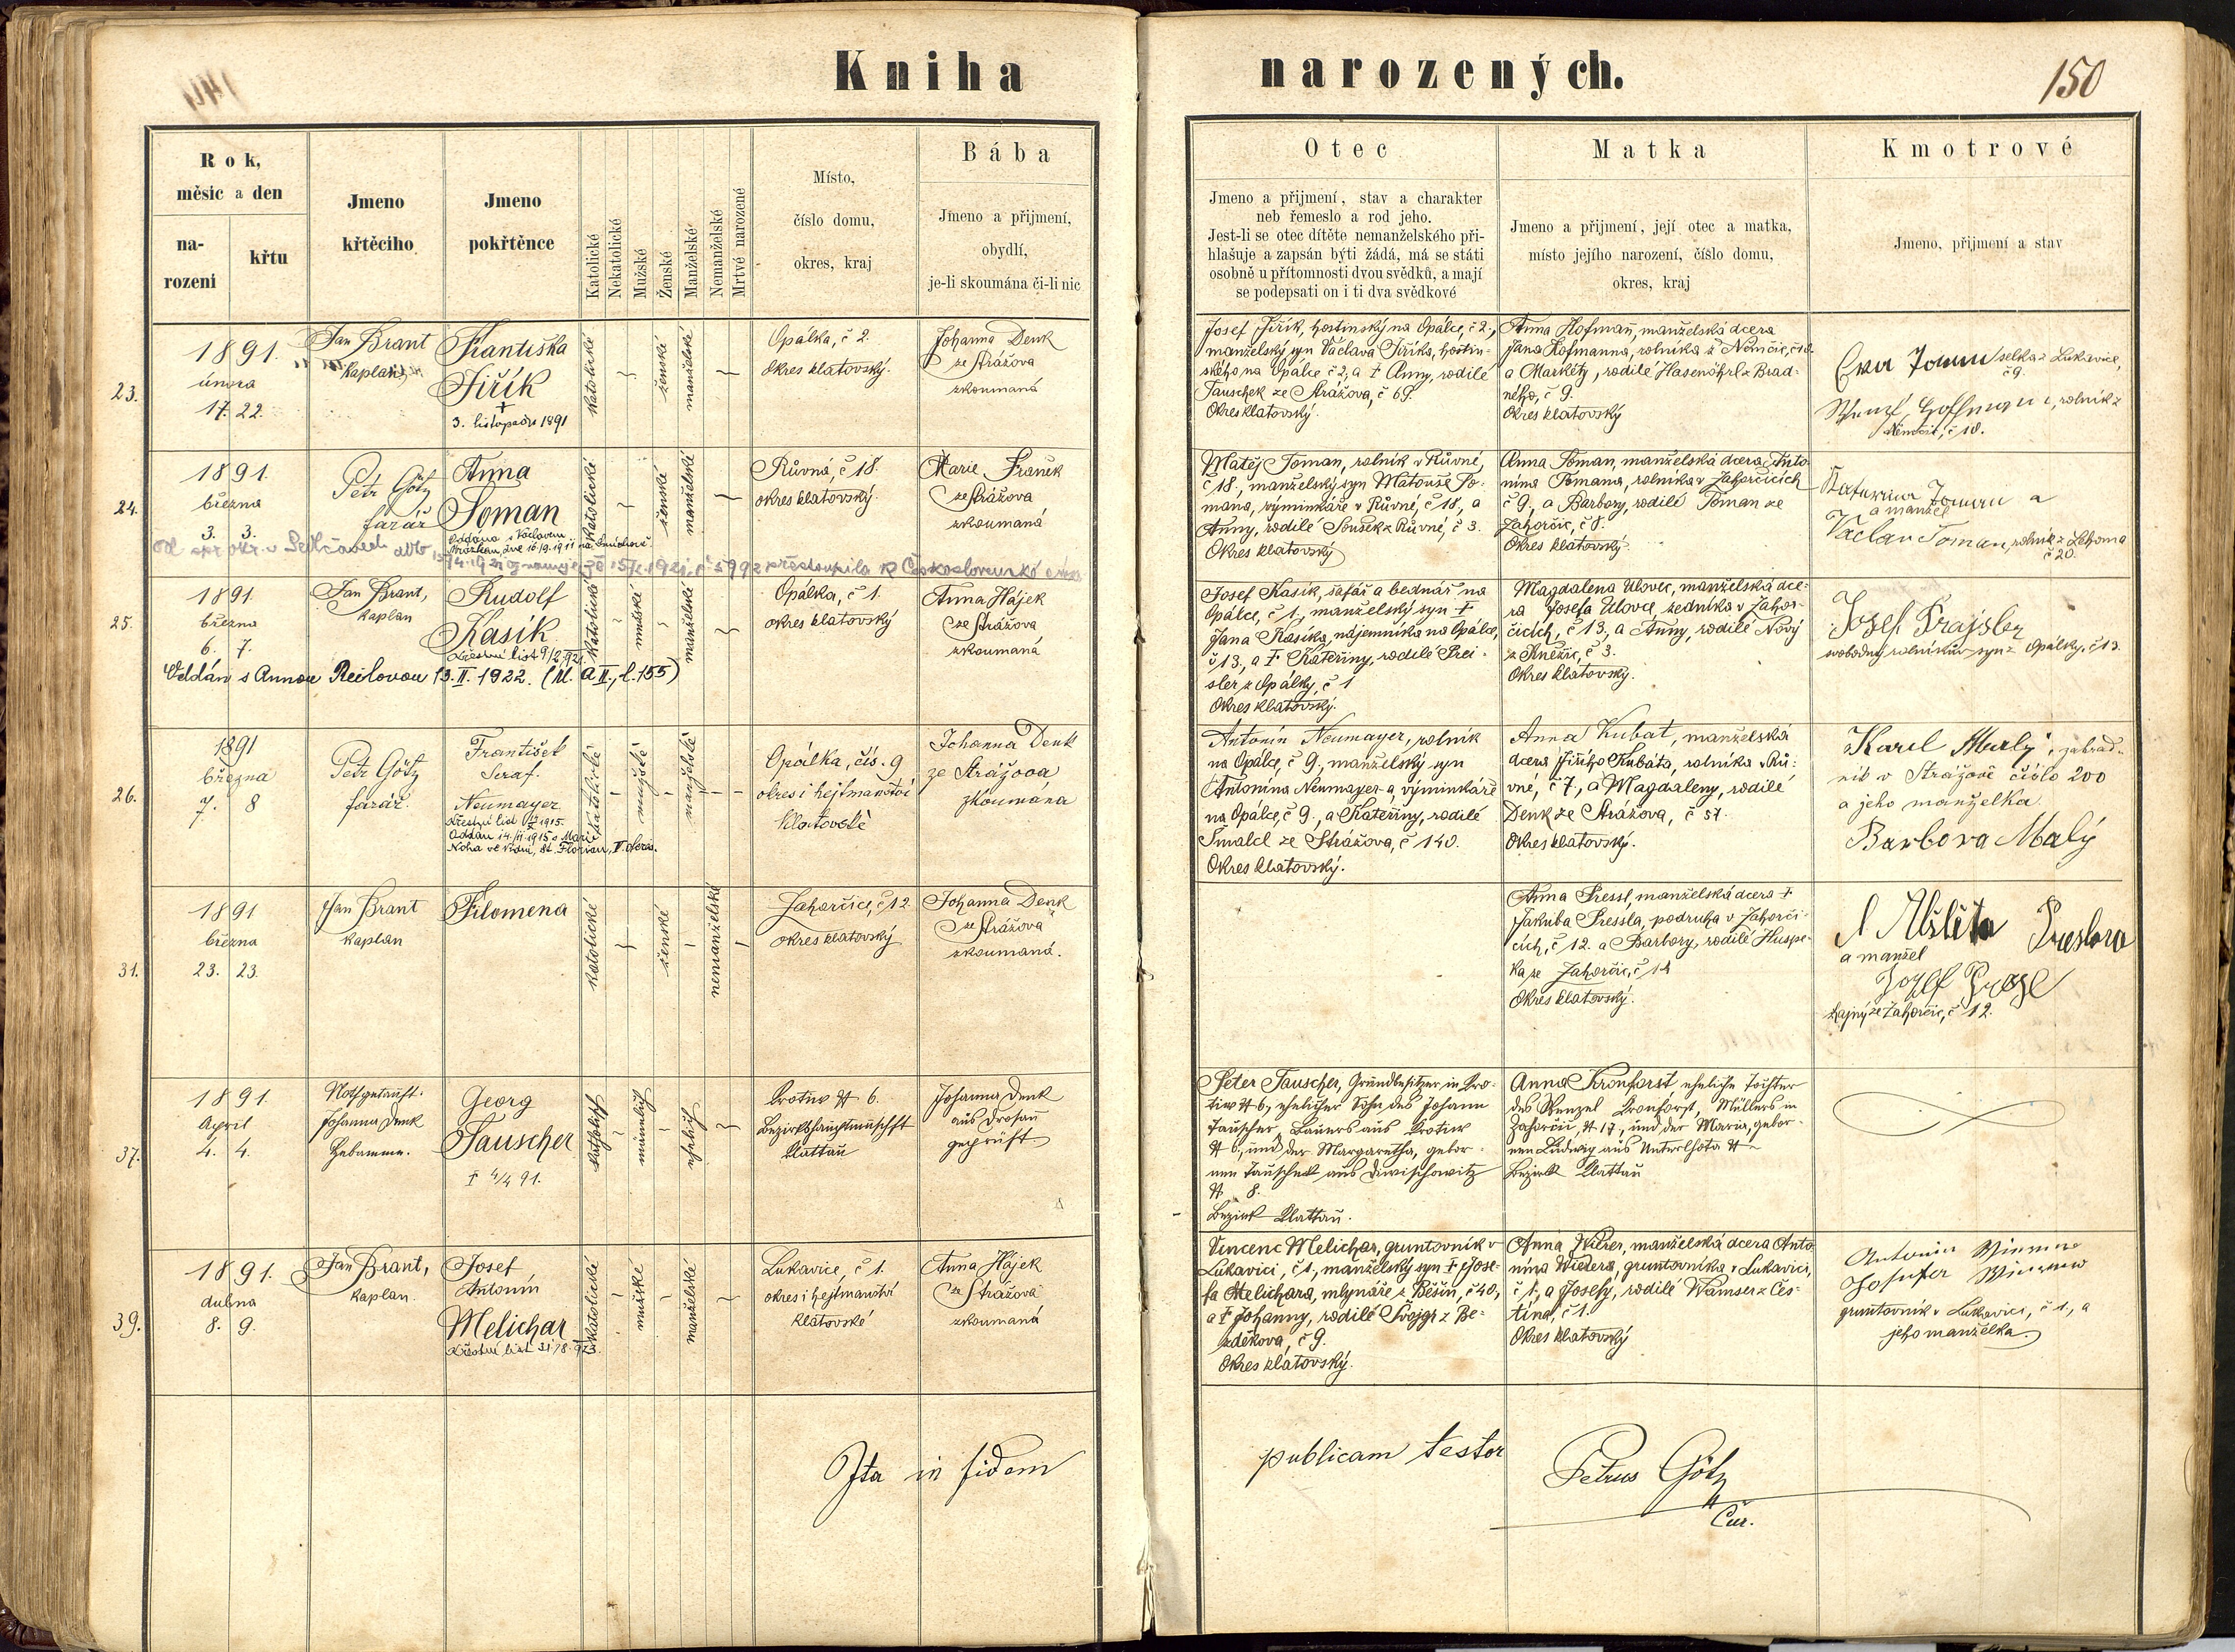 Kniha narozených.
150
Rok,
měsíc a den
na-
rození
křtu
Jmeno
křtěcího
Jmeno
pokřtěnce
Katolické
Nekatolické
Mužské
Ženské
Manželské
Nemanželské
Mrtvé narozené
Místo,
číslo domu,
okres, kraj
Bába
Jmeno a přijmení,
obydlí,
je-li skoumána či-li nic
Otec
Jmeno a přijmení, stav a charakter
neb řemeslo a rod jeho.
Jest-li se otec dítěte nemanželského při-
hlašuje a zapsán býti žádá, má se státi
osobně u přítomnosti dvou svědků, a mají
se podepsati on i ti dva svědkové
Matka
Jmeno a přijmení, její otec a matka,
místo jejího narození, číslo domu,
okres, kraj
Kmotrové
Jmeno, přijmení a stav
23.
1891.
února
17. 22.
Jan Brant
kaplan
Františka
Jiřík
+
3. listopadu 1891
katolické
ženské
manželské
Opálka, č 2.
okres klatovský.
Johanna Denk
ze Strážova
zkoumaná
Josef Jiřík, hostinský na Opálce, č 2.,
manželský syn Václava Jiříka, hostin-
ského na Opálce č 2, a † Anny, rodilé
Tauschek ze Strážova, č 69.
Okres klatovský.
Anna Hofmann, manželská dcera
Jana Hofmanna, rolníka z Němčic, č 18.
a Markéty, rodilé Hasenöhrl z Brad-
ného, č 9.
Okres klatovský
Eva Toman selka z Lukavice,
č 9.
Hoffmann, rolník z
Němčic, č 18.
24.
1891.
března
3. 3.
Petr Götz
farář
Anna
Toman
Oddána s Václavem
katolické
ženské
manželské
Růvná, č 18.
okres klatovský.
Marie Franěk
ze Strážova
zkoumaná
Matěj Toman, rolník v Růvné,
č 18., manželský syn Matouše To-
mana, výminkáře v Růvné, č 18, a
Anny, rodilé Soušek z Růvné, č 3.
Okres klatovský
Anna Toman, manželská dcera Anto-
nína Tomana, rolníka v Zahorčicích
č 9., a Barbory, rodilé Toman ze
Zahorčic, č 8.
Okres klatovský.
Kateřina Toman a
a manžel
Václav Toman, rolník z Lehoma
č 20.
25.
1891.
března
6. 7.
Jan Brant,
kaplan
Rudolf
Kasík
Křestní list 9/2 922.
Oddán s Annou Reilovou 13. II. 1922. (M. a II., l. 155)
katolické
mužské
manželské
Opálka, č 1.
okres klatovský
Anna Hájek
ze Strážova
zkoumaná
Josef Kasík, šafář a bednář na
Opálce, č 1., manželský syn †
Jana Kasíka, nájemníka na Opálce,
č 13., a † Kateřiny, rodilé Prei-
sler z Opálky, č 1
Okres klatovský.
Magdalena Ulovec, manželská dce-
ra Josefa Ulovce, zedníka v Zahor-
čicích, č 13., a Anny, rodilé Nový
z Kněžic, č 3.
Okres klatovský.
Jozef Prajsler
svobodný rolníkův syn z Opálky, č 13.
26.
1891
března
7. 8
Petr Götz
farář.
František
Seraf.
Neumayer
Oddán 14./II. 1915 s Marií
Noha ve Vídni, St. Florian, V. okres.
katolické
mužské
manželské
Opálka, čís. 9
okres i hejtmanství
Klatovské
Johanna Denk
ze Strážova
zkoumána
Antonín Neumayer, rolník
na Opálce, č 9., manželský syn
Antonína Neumayer-a, výminkáře
na Opálce, č 9., a Kateřiny, rodilé
Šmalcl ze Strážova, č 140.
Okres klatovský.
Anna Kubat, manželská
dcera Jiřího Kubáta, rolníka v Rů-
vné, č 7., a Magdaleny, rodilé
Denk ze Strážova, č 57.
Okres klatovský.
Karel Malý, zahrad-
ník v Strážově číslo 200
a jeho manželka
Barbora Malý
31.
1891
března
23. 23.
Jan Brant
kaplan
Filomena
katolické
ženské
nemanželské
Zahorčice, č 12
okres klatovský
Johanna Denk
ze Strážova
zkoumaná.
Anna Pressl, manželská dcera †
Jakuba Pressla, podruha v Zahorči-
cích, č 12. a Barbory, rodilé Huspe-
ka ze Zahorčic, č 14
Okres klatovský.
Alžběta Preslova
a manžel
Jozef Presl
krajný ze Zahorčic, č 12.
37.
1891.
April
4. 4.
Nothgetauft.
Johanna Denk
Hebamme.
Georg
Tauscher
† 4/4 91.
katholisch
männlich
ehelich
Krotiw № 6.
Bezirkshauptmannschft
Klattau
Johanna Denk
aus Drosau
geprüft
Peter Tauscher, Grundbesitzer in Kro-
tiw № 6, ehelicher Sohn des Johann
Tauscher, Bauers aus Krotiw
№ 6, und der Margaretha, gebor-
nen Tauschek aus Kwischowitz
№ 8.
Bezirk Klattau.
Anna Kronforst eheliche Tochter
des Wenzel Kronforst, Müllers in
Zahorčic, № 17, und der Maria, gebor-
nen Ludwig aus Unterlhota № ~
Bezirk Klattau
39.
1891.
dubna
8. 9.
Jan Brant,
kaplan.
Josef
Antonín
Melichar
Křestní list 31/8. 923.
katolické
mužské
manželské
Lukavice, č 1.
okres i hejtmanství
klatovské
Anna Hájek
ze Strážova
zkoumaná
Vincenc Melichar, gruntovník v
Lukavici, č 1., manželský syn † Jose-
fa Melichara, mlynáře z Běšin, č 40,
a † Johanny, rodilé Švojgr z Be-
zděkova, č 9.
Okres klatovský.
Anna Wierer, manželská dcera Anto-
nína Wierera, gruntovníka v Lukavici,
č 1, a Josefy, rodilé Wamser z Čes-
tína, č 1.
Okres klatovský
Antonin
gruntovník v Lukavici, č 1., a
jeho manželka.
Ita in fidem publicam testor
Petrus Götz
Cur.